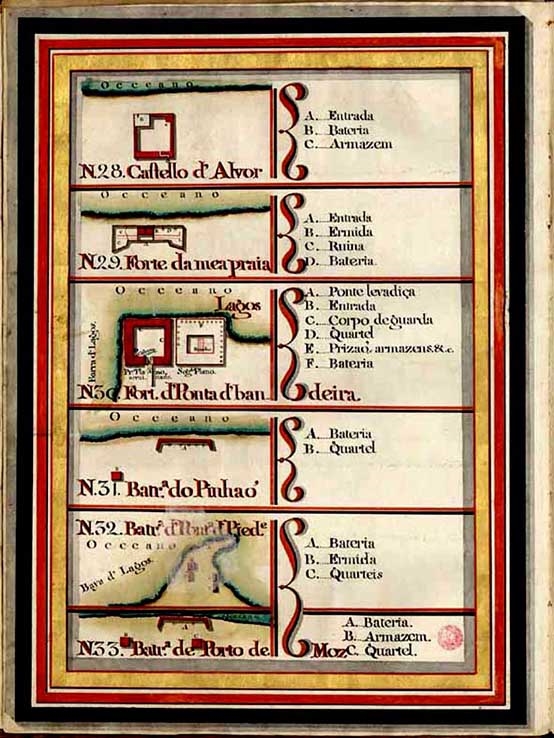 Occeano
N.28. Castello d'Alvor
A. Entrada
B. Bateria
C. Armazem
Occeano
N.29. Forte da mea praia
A. Entrada
B. Ermida
C. Ruina
D. Bateria
Occeano
Lagos
Barra d'Lagoz
N.30. Fort. d'Ponta d'ban deira.
A. Ponte levadiça
B. Entrada
C. Corpo de guarda
D. Quartel
E. Prizaõ, armazens. &.c.
F. Bateria
Occeano
N.31. Batr.ª do Pinhaõ
A. Bateria
B. Quartel
N.32. Batr.ª d'Pont.ª d'Pied.e
Occeano
Baya d' Lagos
A. Bateria
B. Ermida
C. Quarteis
N.33. Batr.ª de Porto de Moz
A. Bateria.
B. Armazem.
C. Quartel.